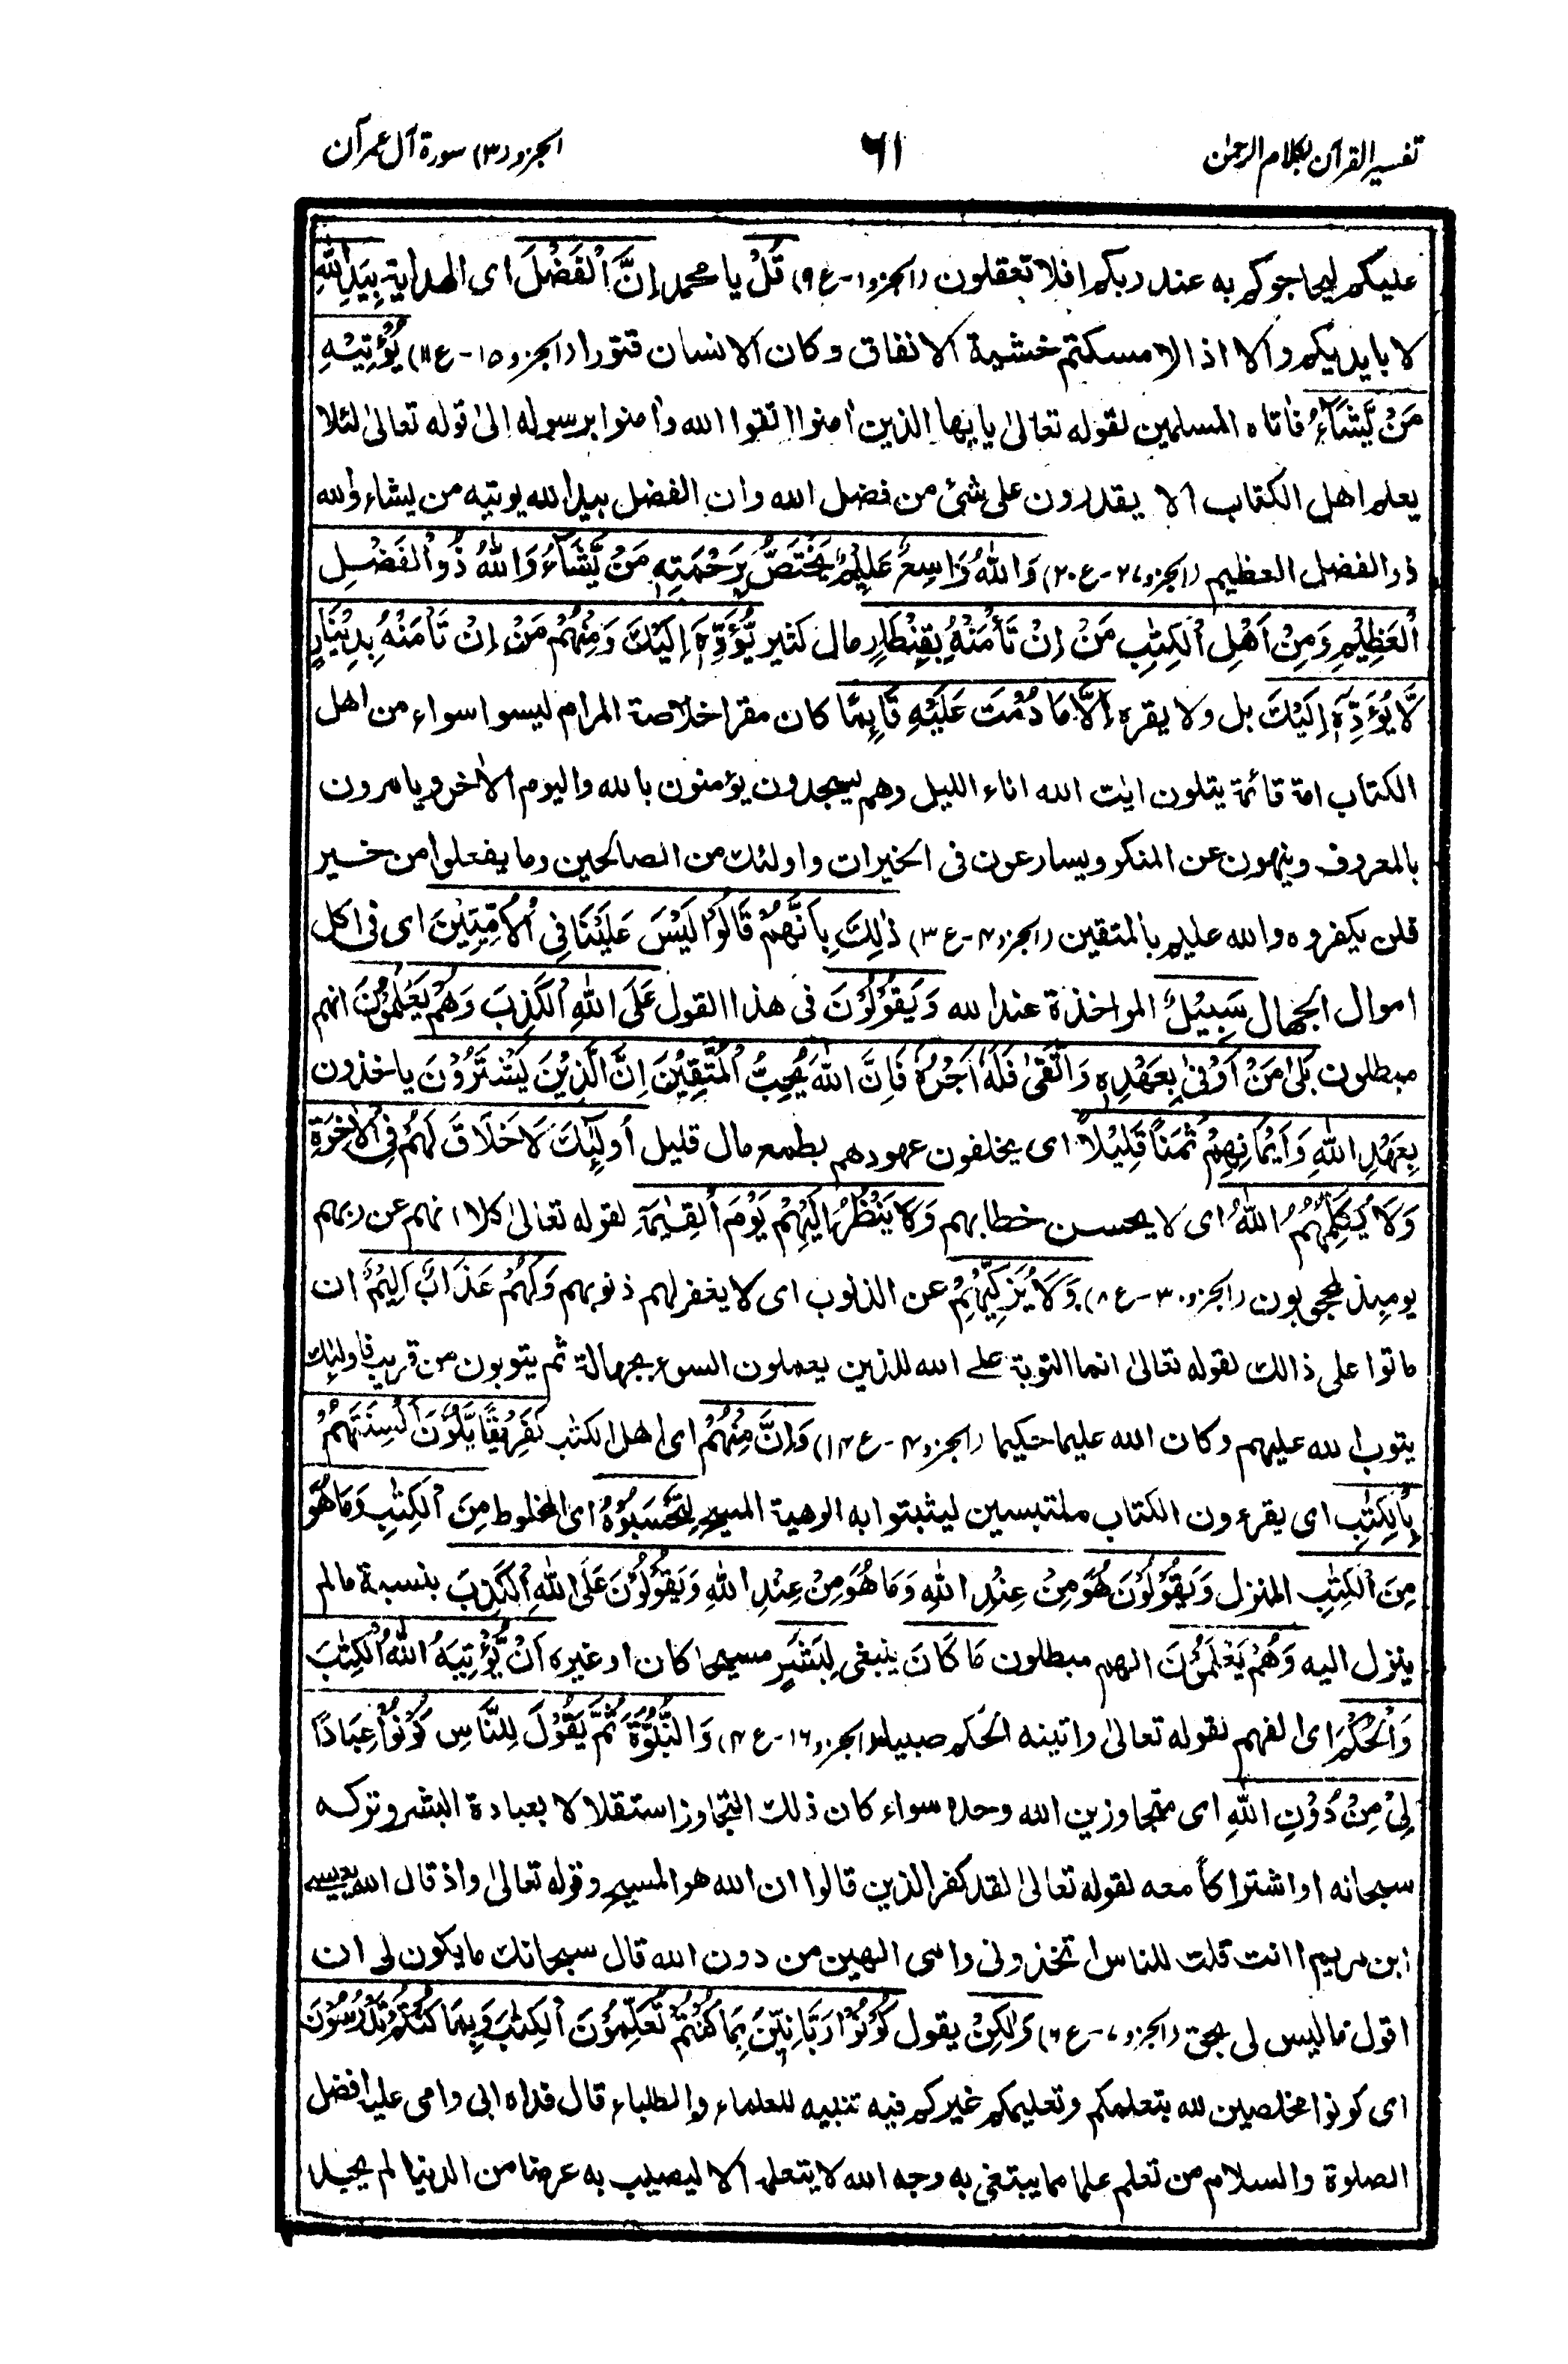 تفسير القرآن بكلام الرحمن
٦١
الجزو (٣) سورة آل عمرآن
عليكم ليحاجوكم به عند ربكم افلا تعقلون (الجزو ١- ع ٩) قُلْ يا محمد اِنَّ الْفَضْلَ اى الهداية بِيَدِ اللّٰهِ
لا بايديكم والا اذا لامسكتم خشية الانفاق وكان الانسان قتورا (الجزو ١٥- ع ١١) يُؤْتِيْهِ
مَنْ يَّشَآءُ فاتاه المسلمين لقوله تعالىٰ يايها الذين اٰمنوا اتقوا الله واٰمنوا برسوله الىٰ قوله تعالىٰ لئلا
يعلم اهل الكتاب الا يقدرون على شئ من فضل الله وان الفضل بيد الله يوتيه من يشاء والله
ذو الفضل العظيم (الجزو ٢٧- ع ٢٠) وَاللّٰهُ وَاسِعٌ عَلِيْمٌ يَّخْتَصُّ بِرَحْمَتِهٖ مَنْ يَّشَآءُ وَاللّٰهُ ذُو الْفَضْلِ
الْعَظِيْمِ وَمِنْ اَهْلِ الْكِتٰبِ مَنْ اِنْ تَأْمَنْهُ بِقِنْطَارٍ مال كثير يُّؤَدِّهٖٓ اِلَيْكَ وَمِنْهُمْ مَنْ اِنْ تَأْمَنْهُ بِدِيْنَارٍ
لَّا يُؤَدِّهٖٓ اِلَيْكَ بل ولا يقره اِلَّا مَا دُمْتَ عَلَيْهِ قَآئِمًا كان مقرا خلاصة المرام ليسوا سواء من اهل
الكتاب امة قائمة يتلون ايٰت الله اناء الليل وهم يسجدون يؤمنون بالله واليوم الاٰخر ويامرون
بالمعروف وينهون عن المنكر ويسارعون فى الخيرات واولئك من الصالحين وما يفعلوا من خير
فلن يكفروه والله عليم بالمتقين (الجزو ٤- ع ٣) ذٰلِكَ بِاَنَّهُمْ قَالُوْا لَيْسَ عَلَيْنَا فِى الْاُمِّيّٖنَ اى فى اكل
اموال الجهال سَبِيْلٌ المواخذة عند الله وَيَقُوْلُوْنَ فى هذا القول عَلَى اللّٰهِ الْكَذِبَ وَهُمْ يَعْلَمُوْنَ انهم
مبطلون بَلٰى مَنْ اَوْفٰى بِعَهْدِهٖ وَاتَّقٰى فَلَهٗ اَجْرُهٗ فَاِنَّ اللّٰهَ يُحِبُّ الْمُتَّقِيْنَ اِنَّ الَّذِيْنَ يَشْتَرُوْنَ ياخذون
بِعَهْدِ اللّٰهِ وَاَيْمَانِهِمْ ثَمَنًا قَلِيْلًا اى يخلفون عهودهم بطمع مال قليل اُولٰٓئِكَ لَا خَلَاقَ لَهُمْ فِى الْاٰخِرَةِ
وَلَا يُكَلِّمُهُمُ اللّٰهُ اى لا يحسن خطابهم وَلَا يَنْظُرُ اِلَيْهِمْ يَوْمَ الْقِيٰمَةِ لقوله تعالىٰ كلا انهم عن ربهم
يومئذ لمحجوبون (الجزو ٣٠- ع ٨) وَلَا يُزَكِّيْهِمْ عن الذنوب اى لا يغفر لهم ذنوبهم وَلَهُمْ عَذَابٌ اَلِيْمٌ ان
ماتوا على ذالك لقوله تعالىٰ انما التوبة على الله للذين يعملون السوء بجهالة ثم يتوبون من قريب فاولئك
يتوب الله عليهم وكان الله عليما حكيما (الجزو ٤- ع ١٤) وَاِنَّ مِنْهُمْ اى اهل الكتٰب لَفَرِيْقًا يَّلْوٗنَ اَلْسِنَتَهُمْ
بِالْكِتٰبِ اى يقرءون الكتاب ملتبسين ليثبتوا به الوهية المسيح لِتَحْسَبُوْهُ اى المخلوط مِنَ الْكِتٰبِ وَمَا هُوَ
مِنَ الْكِتٰبِ المنزل وَيَقُوْلُوْنَ هُوَ مِنْ عِنْدِ اللّٰهِ وَمَا هُوَ مِنْ عِنْدِ اللّٰهِ وَيَقُوْلُوْنَ عَلَى اللّٰهِ الْكَذِبَ بنسبة مالم
ينزل اليه وَهُمْ يَعْلَمُوْنَ انهم مبطلون مَا كَانَ ينبغى لِبَشَرٍ مسيحا كان او غيره اَنْ يُّؤْتِيَهُ اللّٰهُ الْكِتٰبَ
وَالْحُكْمَ اى الفهم لقوله تعالىٰ واتينه الحكم صبيا (الجزو ١٦- ع ٤) وَالنُّبُوَّةَ ثُمَّ يَقُوْلَ لِلنَّاسِ كُوْنُوْا عِبَادًا
لِّىْ مِنْ دُوْنِ اللّٰهِ اى متجاوزين الله وحده سواء كان ذلك التجاوز استقلالا بعبادة البشر وتركه
سبحانه او اشتراكاً معه لقوله تعالىٰ لقد كفر الذين قالوا ان الله هو المسيح وقوله تعالىٰ واذ قال الله يعيسى
ابن مريم اانت قلت للناس اتخذونى وامى الهين من دون الله قال سبحانك ما يكون لى ان
اقول ما ليس لى بحق (الجزو ٧- ع ٦) وَلٰكِنْ يقول كُوْنُوْا رَبَّانِيّٖنَ بِمَا كُنْتُمْ تُعَلِّمُوْنَ الْكِتٰبَ وَبِمَا كُنْتُمْ تَدْرُسُوْنَ
اى كونوا مخلصين لله بتعلمكم وتعليمكم غيركم فيه تنبيه للعلماء والطلباء قال فداه ابى وامى عليه افضل
الصلوة والسلام من تعلم علما مما يبتغى به وجه الله لا يتعلمه الا ليصيب به عرضا من الدنيا لم يجد